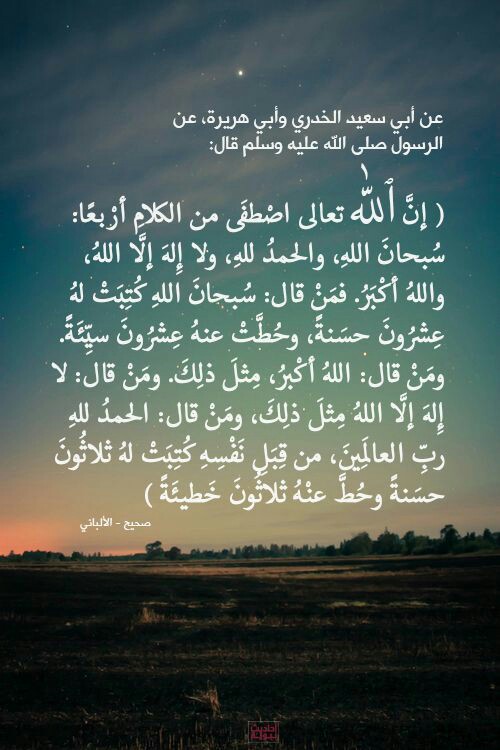 عن أبي سعيد الخدري وأبي هريرة، عن
الرسول صلى الله عليه وسلم قال:
( إنَّ ٱللَّٰه تعالى اصْطفَى من الكلامِ أرْبعًا:
سُبحانَ اللهِ، والحمدُ للهِ، ولا إِلهَ إلَّا اللهُ،
واللهُ أكْبَرُ. فمَنْ قال: سُبحانَ اللهِ كُتِبَتْ لهُ
عِشرُونَ حسَنةً، وحُطَّتْ عنهُ عِشرُونَ سيِّئَةً.
ومَنْ قال: اللهُ أكْبرُ، مِثلَ ذلِكَ. ومَنْ قال: لا
إِلهَ إلَّا اللهُ مِثلَ ذلِكَ، ومَنْ قال: الحمدُ للهِ
ربِّ العالَمِينَ، من قِبَلِ نَفْسِهِ كُتِبَتْ لهُ ثلاثُونَ
حسَنةً وحُطَّ عنْهُ ثلاثُونَ خَطيئَةً )
صحيح - الألباني